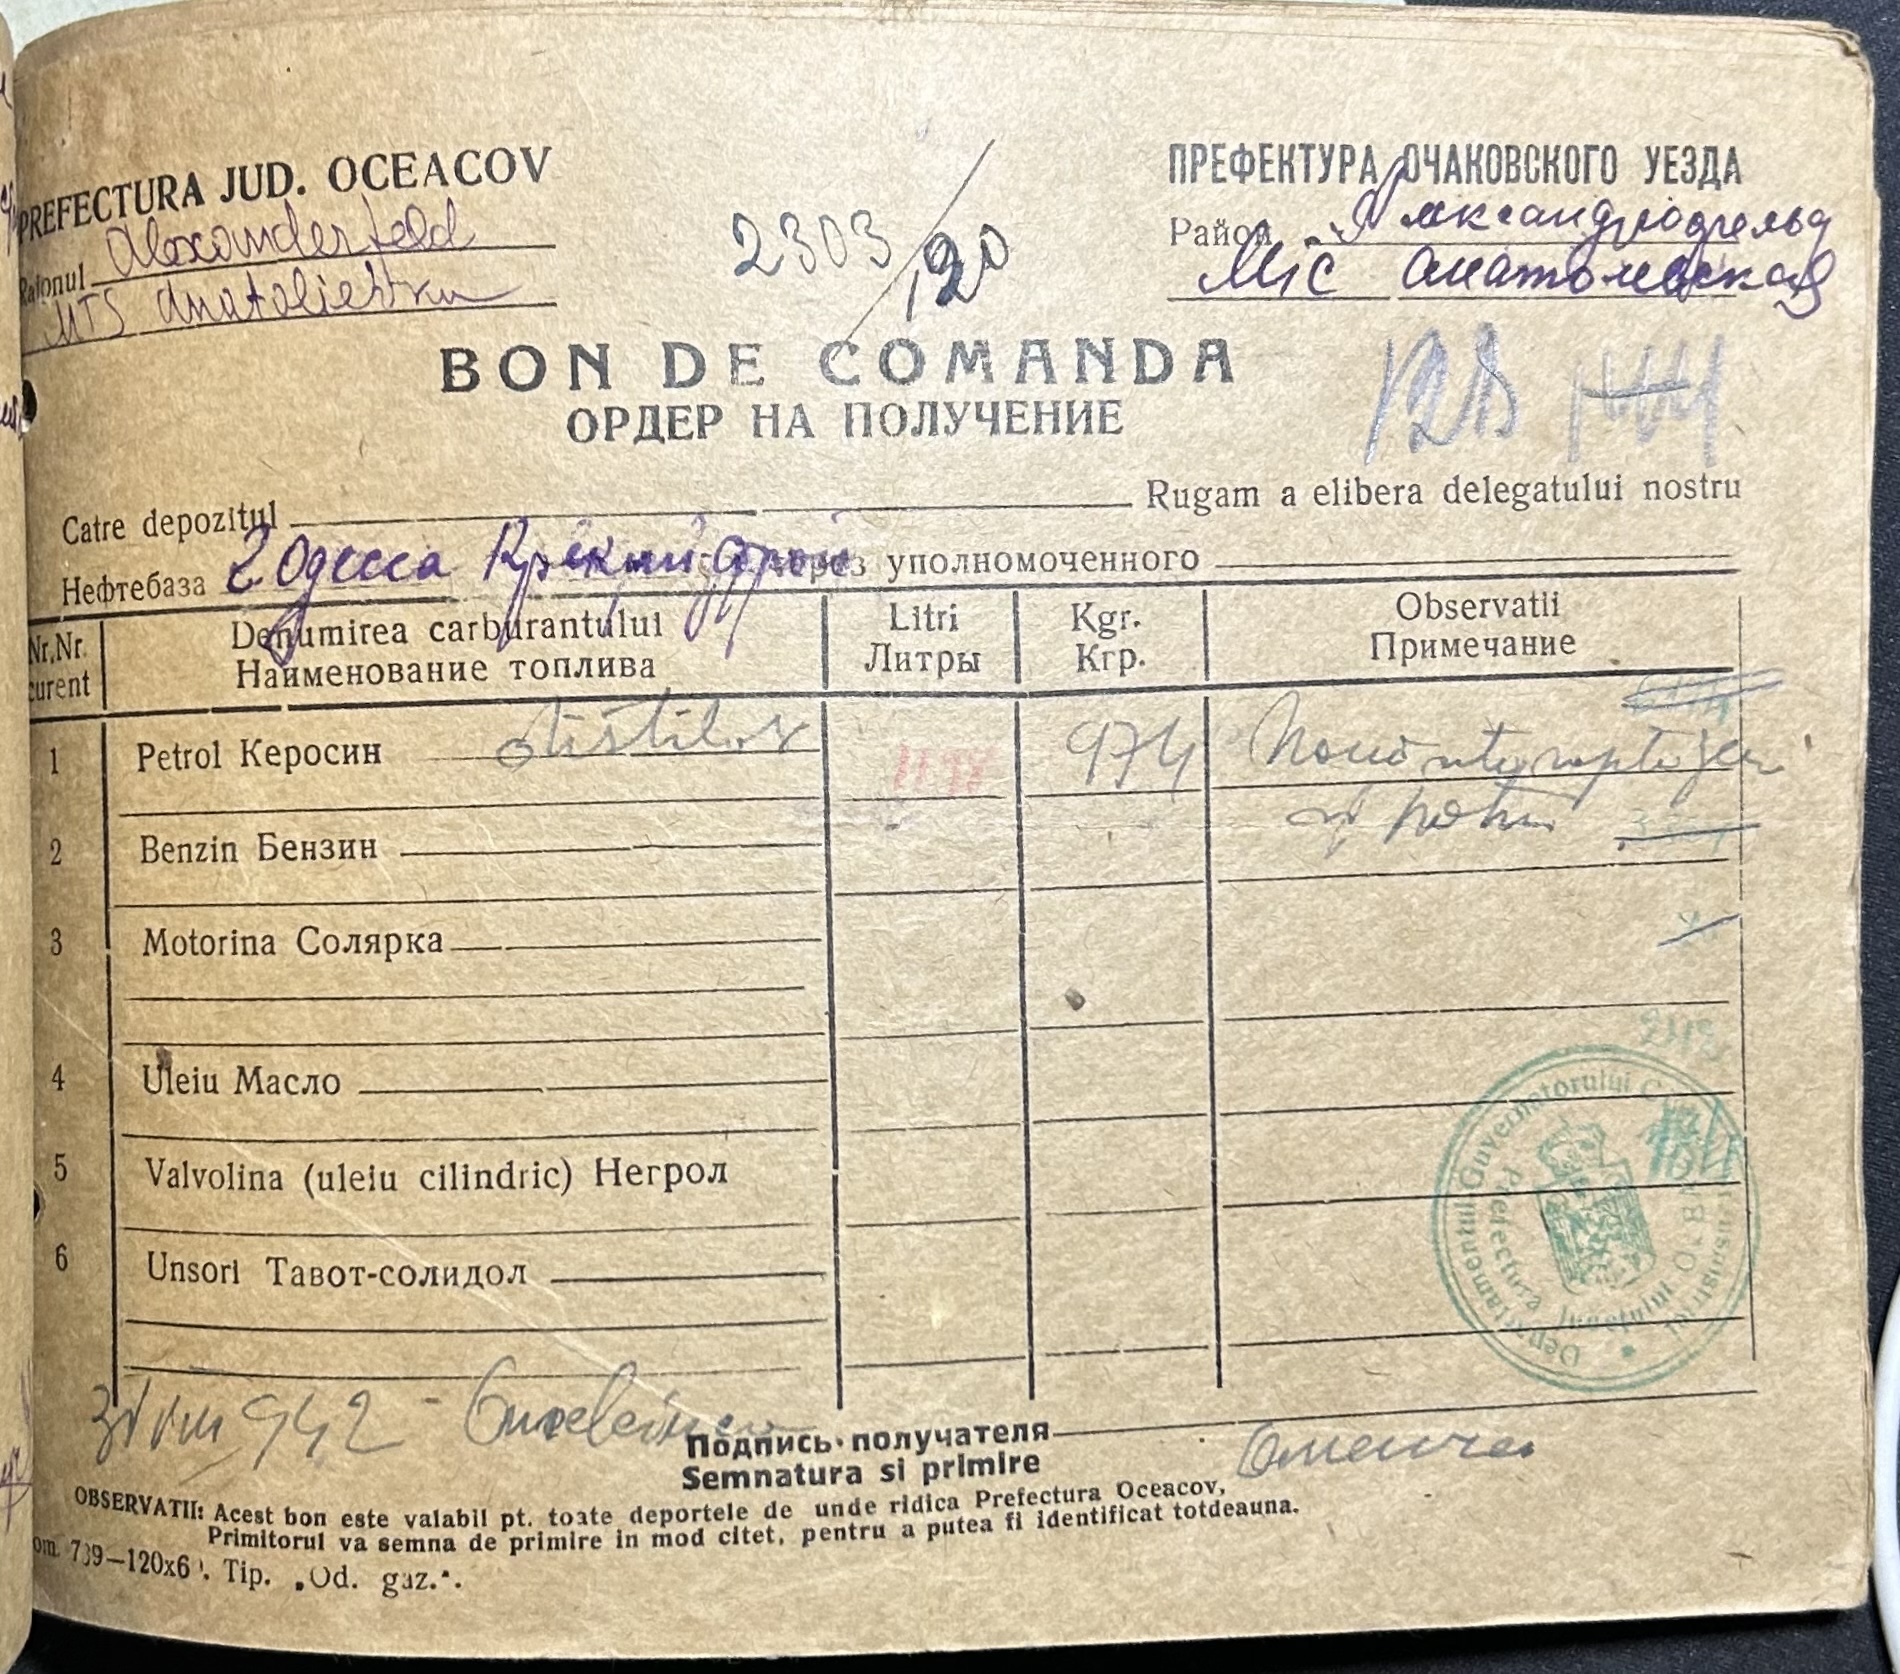 PREFECTURA JUD. OCEACOV
Raionul Alexanderfeld
MTS Anatolievka
2303/120
ПРЕФЕКТУРА ОЧАКОВСКОГО УЕЗДА
Район Александрфельд
МТС Анатольевская
BON DE COMANDA
ОРДЕР НА ПОЛУЧЕНИЕ
Catre depozitul Rugam a elibera delegatului nostru
Нефтебаза г Одесса через уполномоченного
Nr.Nr. curent
Denumirea carburantului
Наименование топлива
Litri
Литры
Kgr.
Кгр.
Observatii
Примечание
1 Petrol Керосин distilat 974 Nouă sute șapte zeci
și patru
2 Benzin Бензин
3 Motorina Солярка
4 Uleiu Масло
5 Valvolina (uleiu cilindric) Негрол
6 Unsori Тавот-солидол
Departamentul Guvernatorului
Prefectura Judetului
942
Подпись получателя
Semnatura si primire
OBSERVATII: Acest bon este valabil pt. toate deportele de unde ridica Prefectura Oceacov,
Primitorul va semna de primire in mod citet, pentru a putea fi identificat totdeauna.
Tip. „Od. gaz.".